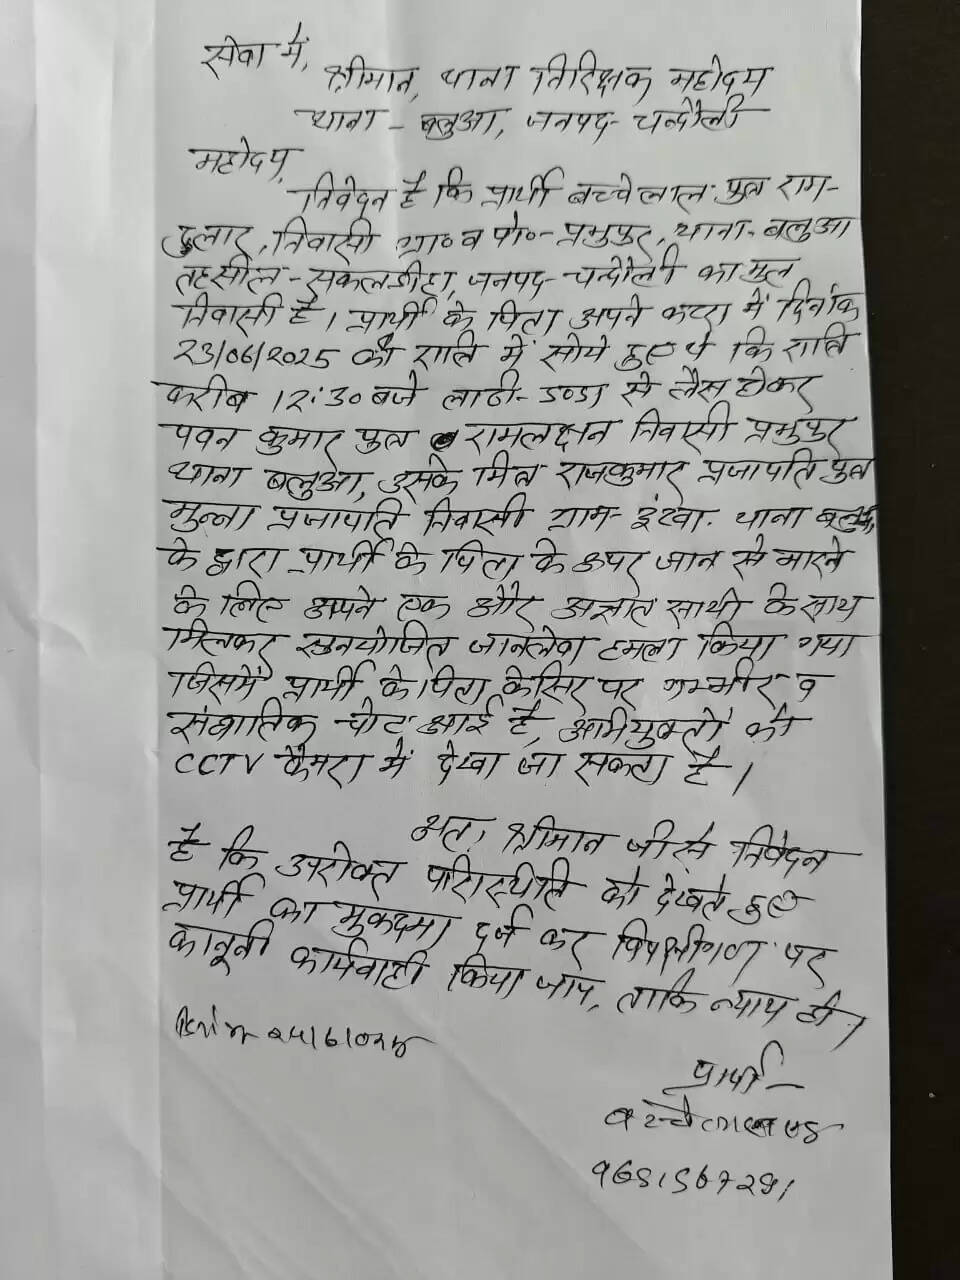 सेवा में,
श्रीमान, थाना निरिक्षक महोदय
थाना - बलुआ, जनपद - चन्दौली
महोदय,
निवेदन है कि प्रार्थी बच्चेलाल पुत्र राम-
दुलार, निवासी ग्रा० व पो०- प्रभुपुर, थाना- बलुआ
तहसील - सकलडीहा, जनपद - चन्दौली का मूल
निवासी है। प्रार्थी के पिता अपने कटरा में दिनांक
23/06/2025 की रात्रि में सोये हुए थे कि रात्रि
करीब 12:30 बजे लाठी-डण्डा से लैस होकर
पवन कुमार पुत्र रामलक्षन निवासी प्रभुपुर
थाना बलुआ, उसके मित्र राजकुमार प्रजापति पुत्र
मुन्ना प्रजापति निवासी ग्राम- थाना बलुआ
के द्वारा प्रार्थी के पिता के ऊपर जान से मारने
के लिए अपने एक और अज्ञात साथी के साथ
मिलकर जानलेवा हमला किया गया
जिसमें प्रार्थी के पिता के सिर पर गम्भीर व
संघातिक चोट आई है, अभियुक्तों को
CCTV कैमरा में देखा जा सकता है।
अतः श्रीमान जी से निवेदन
है कि उपरोक्त परिस्थिति को देखते हुए
प्रार्थी का मुकदमा दर्ज कर विपक्षीगण पर
कानूनी कार्यवाही किया जाय, ताकि न्याय हो।
प्रार्थी -